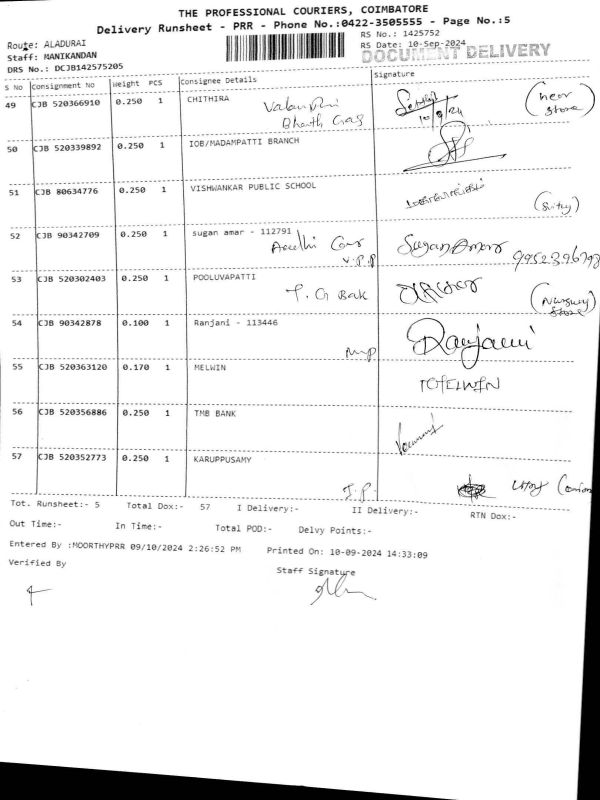 THE PROFESSIONAL COURIERS, COIMBATORE
Delivery Runsheet - PRR - Phone No.:0422-3505555 - Page No.:5
Route: ALADURAI
Staff: MANIKANDAN
DRS No.: DCJB142575205
RS No.: 1425752
RS Date: 10-Sep-2024
DOCUMENT DELIVERY
S No Consignment No Weight PCS Consignee Details Signature
49 CJB 520366910 0.250 1 CHITHIRA (near
Store)
10/9/24
50 CJB 520339892 0.250 1 IOB/MADAMPATTI BRANCH
51 CJB 80634776 0.250 1 VISHWANKAR PUBLIC SCHOOL
52 CJB 90342709 0.250 1 sugan amar - 112791 Sugan Amar 9952396793
V.P.P
53 CJB 520302403 0.250 1 POOLUVAPATTI
54 CJB 90342878 0.100 1 Ranjani - 113446 Ranjani
55 CJB 520363120 0.170 1 MELWIN
56 CJB 520356886 0.250 1 TMB BANK
57 CJB 520352773 0.250 1 KARUPPUSAMY
Tot. Runsheet:- 5 Total Dox:- 57 I Delivery:- II Delivery:- RTN Dox:-
Out Time:- In Time:- Total POD:- Delvy Points:-
Entered By :MOORTHYPRR 09/10/2024 2:26:52 PM Printed On: 10-09-2024 14:33:09
Verified By Staff Signature